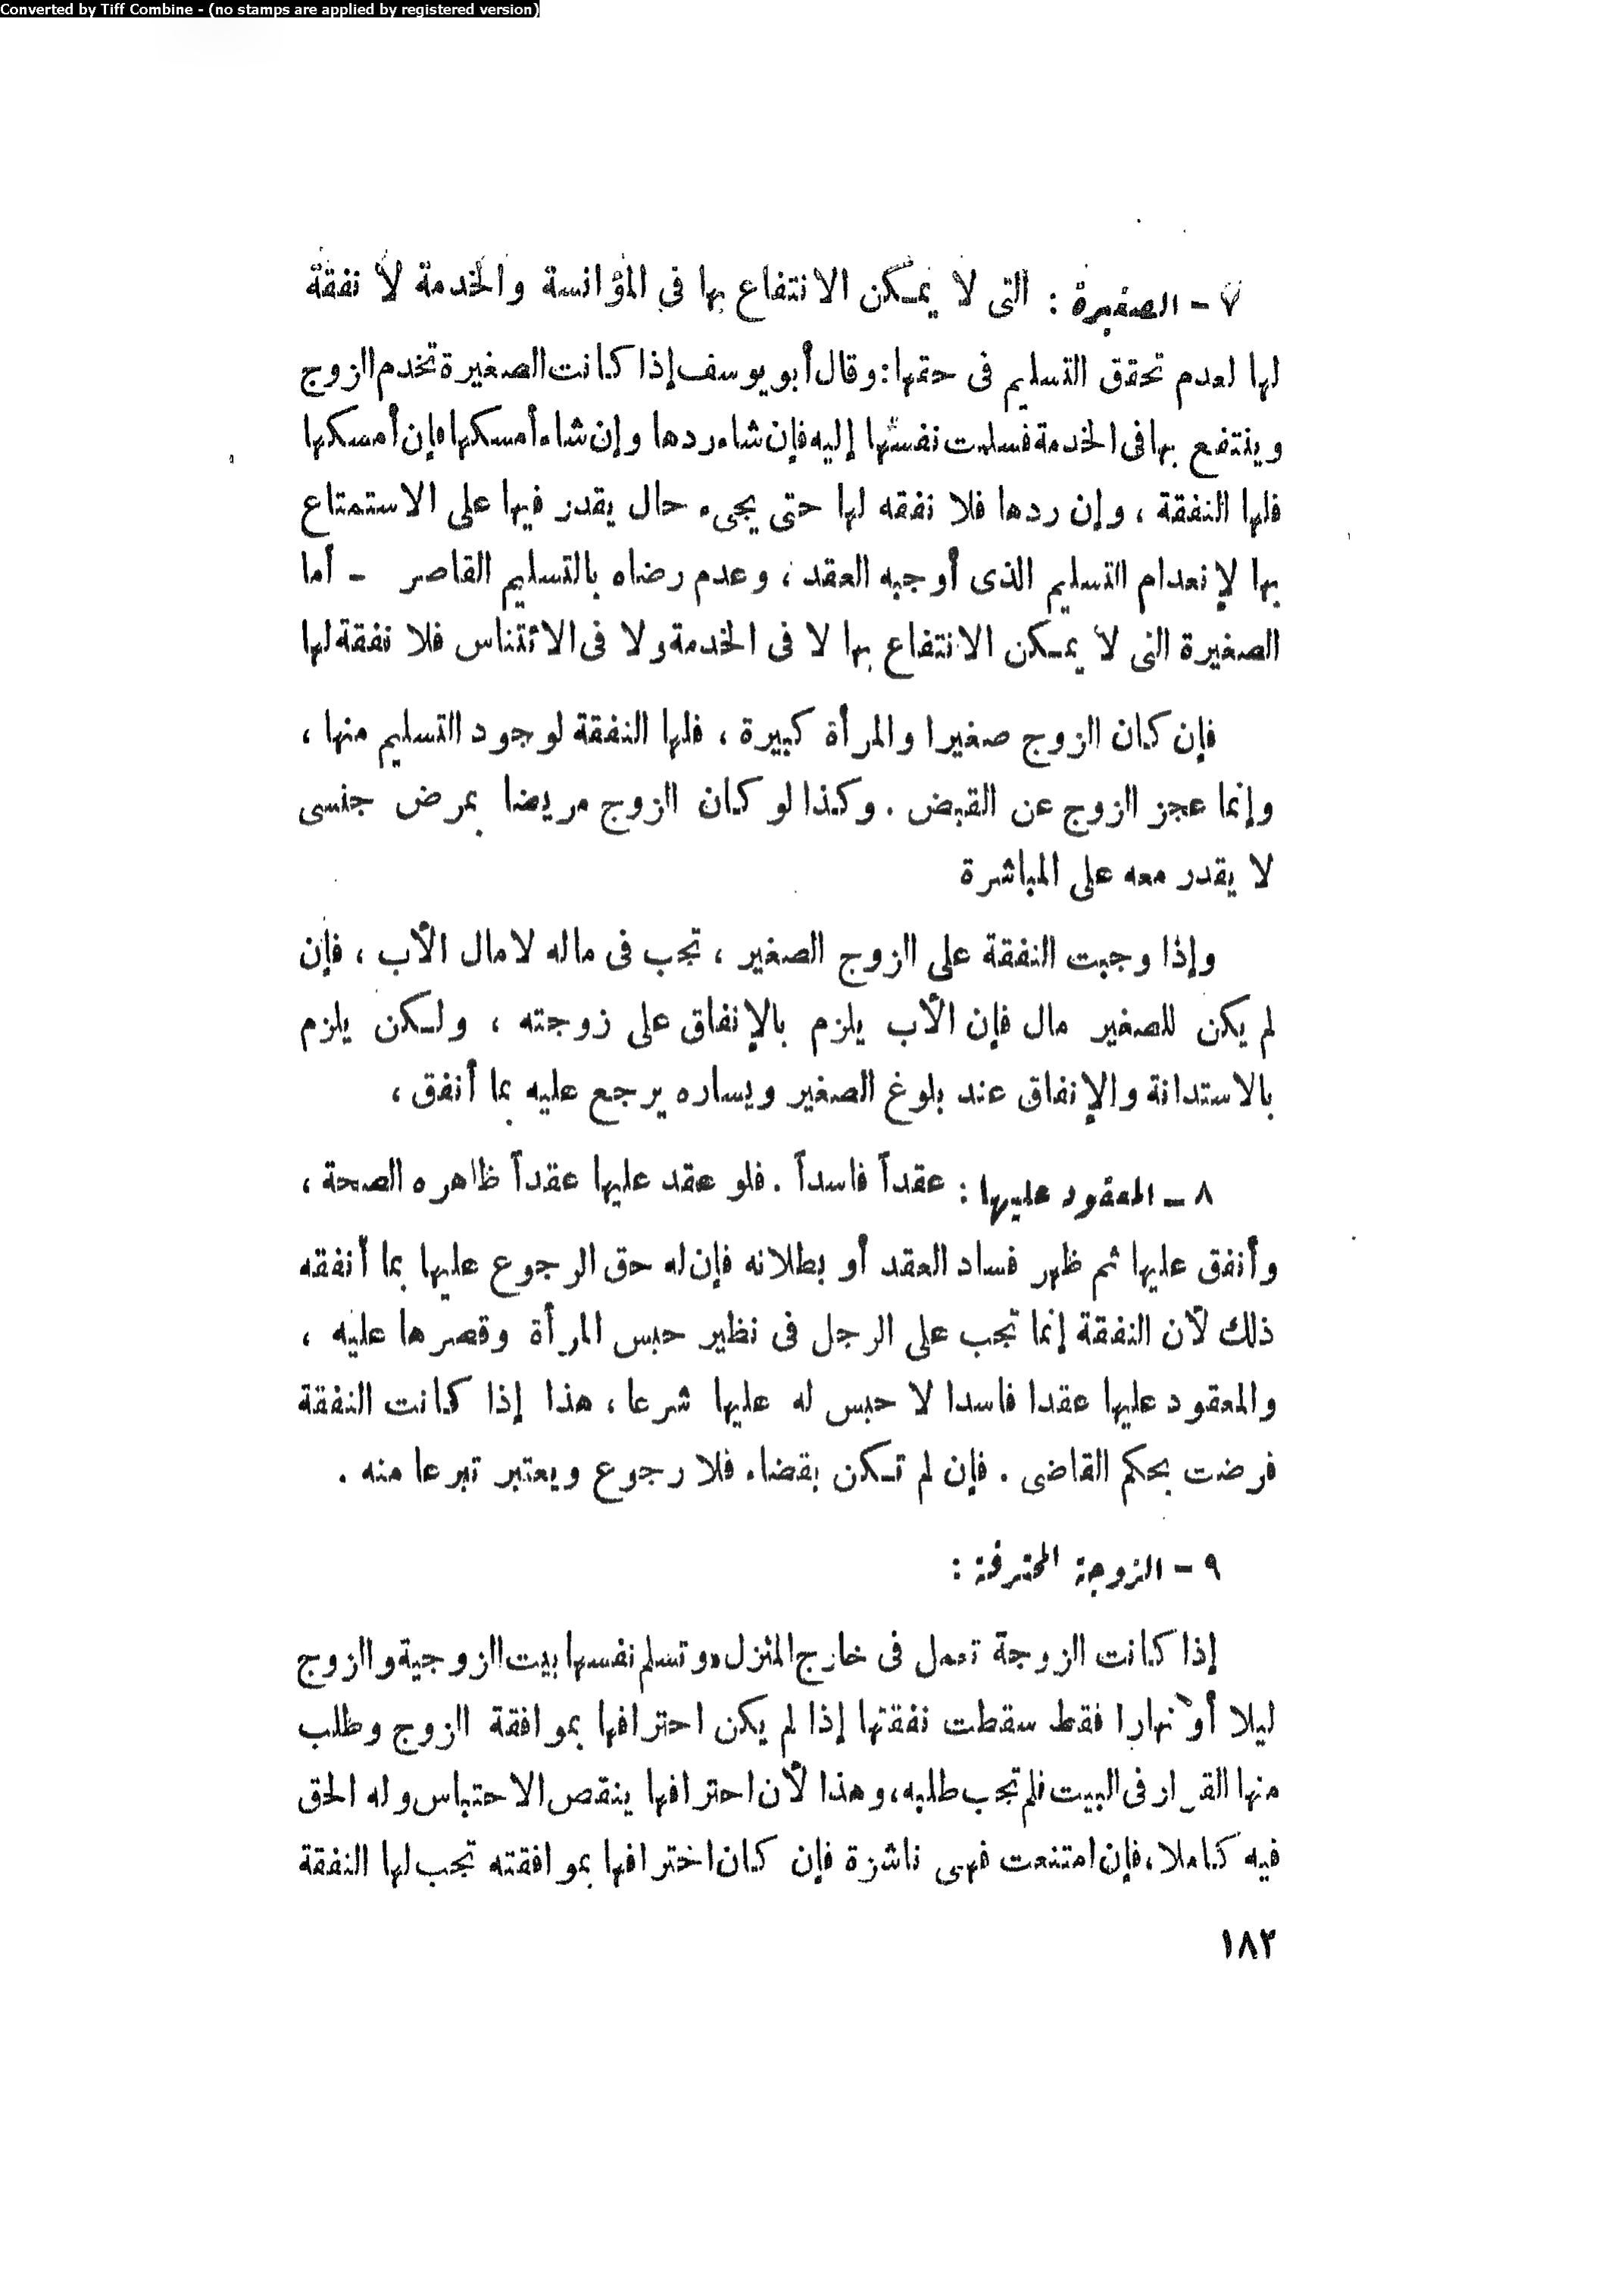 Converted by Tiff Combine - (no stamps are applied by registered version)
٧ - الصغيرة : التى لا يمكن الانتفاع بها فى المؤانسة والخدمة لا نفقة
لها لعدم تحقق التسليم فى حقها: وقال أبو يوسف إذا كانت الصغيرة تخدم الزوج
وينتفع بها فى الخدمة فسلمت نفسها إليه فإن شاء ردها وإن شاء أمسكها فإن أمسكها
فلها النفقة ، وإن ردها فلا نفقه لها حتى يجىء حال يقدر فيها على الاستمتاع
بها لإنعدام التسليم الذى أوجبه العقد ، وعدم رضاه بالتسليم القاصر - أما
الصغيرة التى لا يمكن الانتفاع بها لا فى الخدمة ولا فى الائتناس فلا نفقة لها
فإن كان الزوج صغيرا والمرأة كبيرة ، فلها النفقة لوجود التسليم منها ،
وإنما عجز الزوج عن القبض . وكذا لو كان الزوج مريضا بمرض جنسى
لا يقدر معه على المباشرة
وإذا وجبت النفقة على الزوج الصغير ، تجب فى ماله لا مال الأب ، فإن
لم يكن للصغير مال فإن الأب يلزم بالإنفاق على زوجته ، ولكن يلزم
بالاستدانة والإنفاق عند بلوغ الصغير ويساره يرجع عليه بما أنفق ،
٨ - المعقود عليها : عقداً فاسداً . فلو عقد عليها عقداً ظاهره الصحة ،
وأنفق عليها ثم ظهر فساد العقد أو بطلانه فإن له حق الرجوع عليها بما أنفقه
ذلك لأن النفقة إنما تجب على الرجل فى نظير حبس المرأة وقصرها عليه ،
والمعقود عليها عقدا فاسدا لا حبس له عليها شرعا ، هذا إذا كانت النفقة
فرضت بحكم القاضى . فإن لم تكن بقضاء فلا رجوع ويعتبر تبرعا منه .
٩ - الزوجة المحترفة :
إذا كانت الزوجة تعمل فى خارج المنزل، وتسلم نفسها بيت الزوجية والزوج
ليلا أو نهارا فقط سقطت نفقتها إذا لم يكن احترافها بموافقة الزوج وطلب
منها القرار فى البيت فلم تجب طلبه، وهذا لأن احترافها ينقص الاحتباس وله الحق
فيه كاملا، فإن امتنعت فهى ناشزة فإن كان اخترافها بموافقته تجب لها النفقة
١٨٢